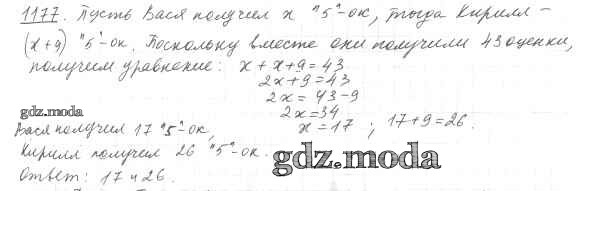 1177. Пусть Вася получил x "5"-ок, тогда Кирилл -
(x+9) "5"-ок. Поскольку вместе они получили 43 оценки,
получим уравнение: x + x + 9 = 43
2x + 9 = 43
2x = 43 - 9
2x = 34
gdz.moda
x = 17 ; 17 + 9 = 26.
Вася получил 17 "5"-ок,
Кирилл получил 26 "5"-ок.
gdz.moda
Ответ: 17 и 26.